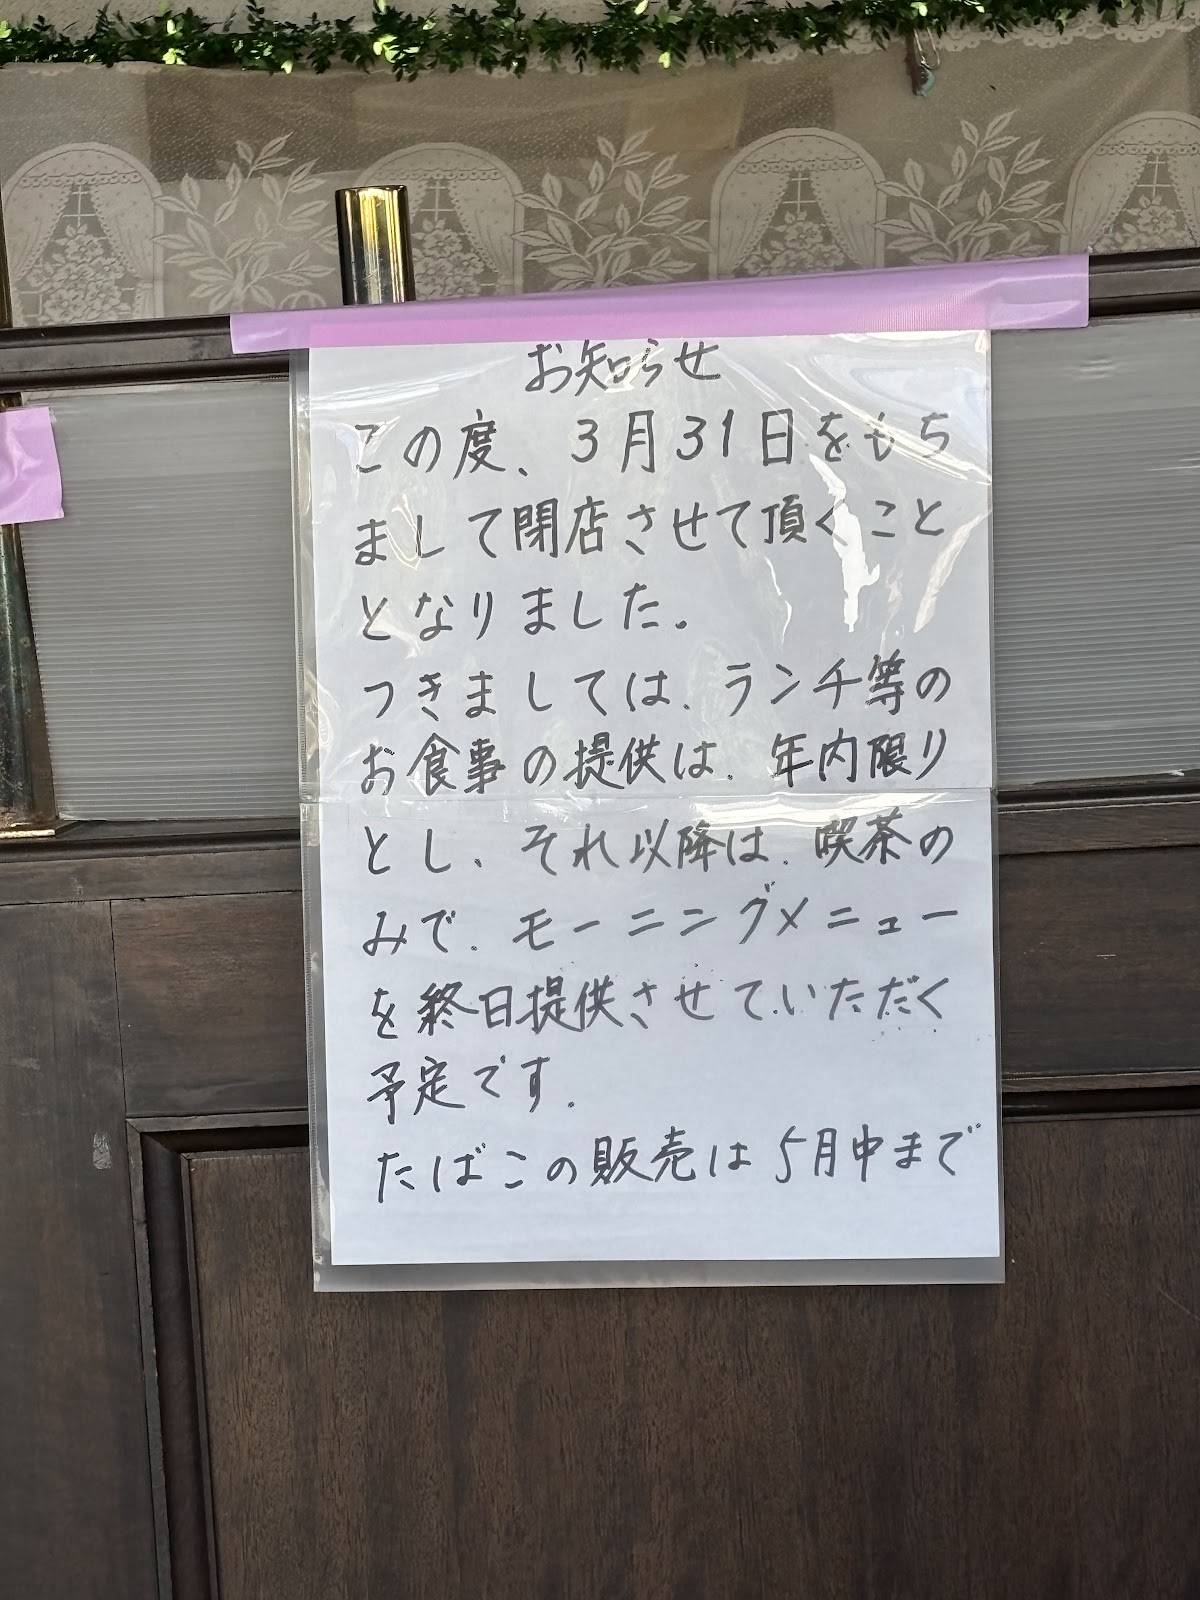 お知らせ
この度、3月31日をもち
まして閉店させて頂くこと
となりました。
つきましては、ランチ等の
お食事の提供は、年内限り
とし、それ以降は、喫茶の
みで、モーニングメニュー
を終日提供させていただく
予定です。
たばこの販売は5月中まで